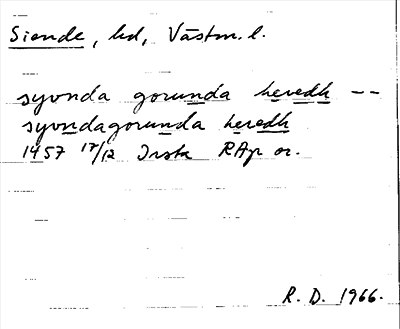 Siende, hd, Västm. l.
syvnda gorunda heredh --
syvndagorunda heredh
1457 17/12 Irsta RAp or.
R. D. 1966.